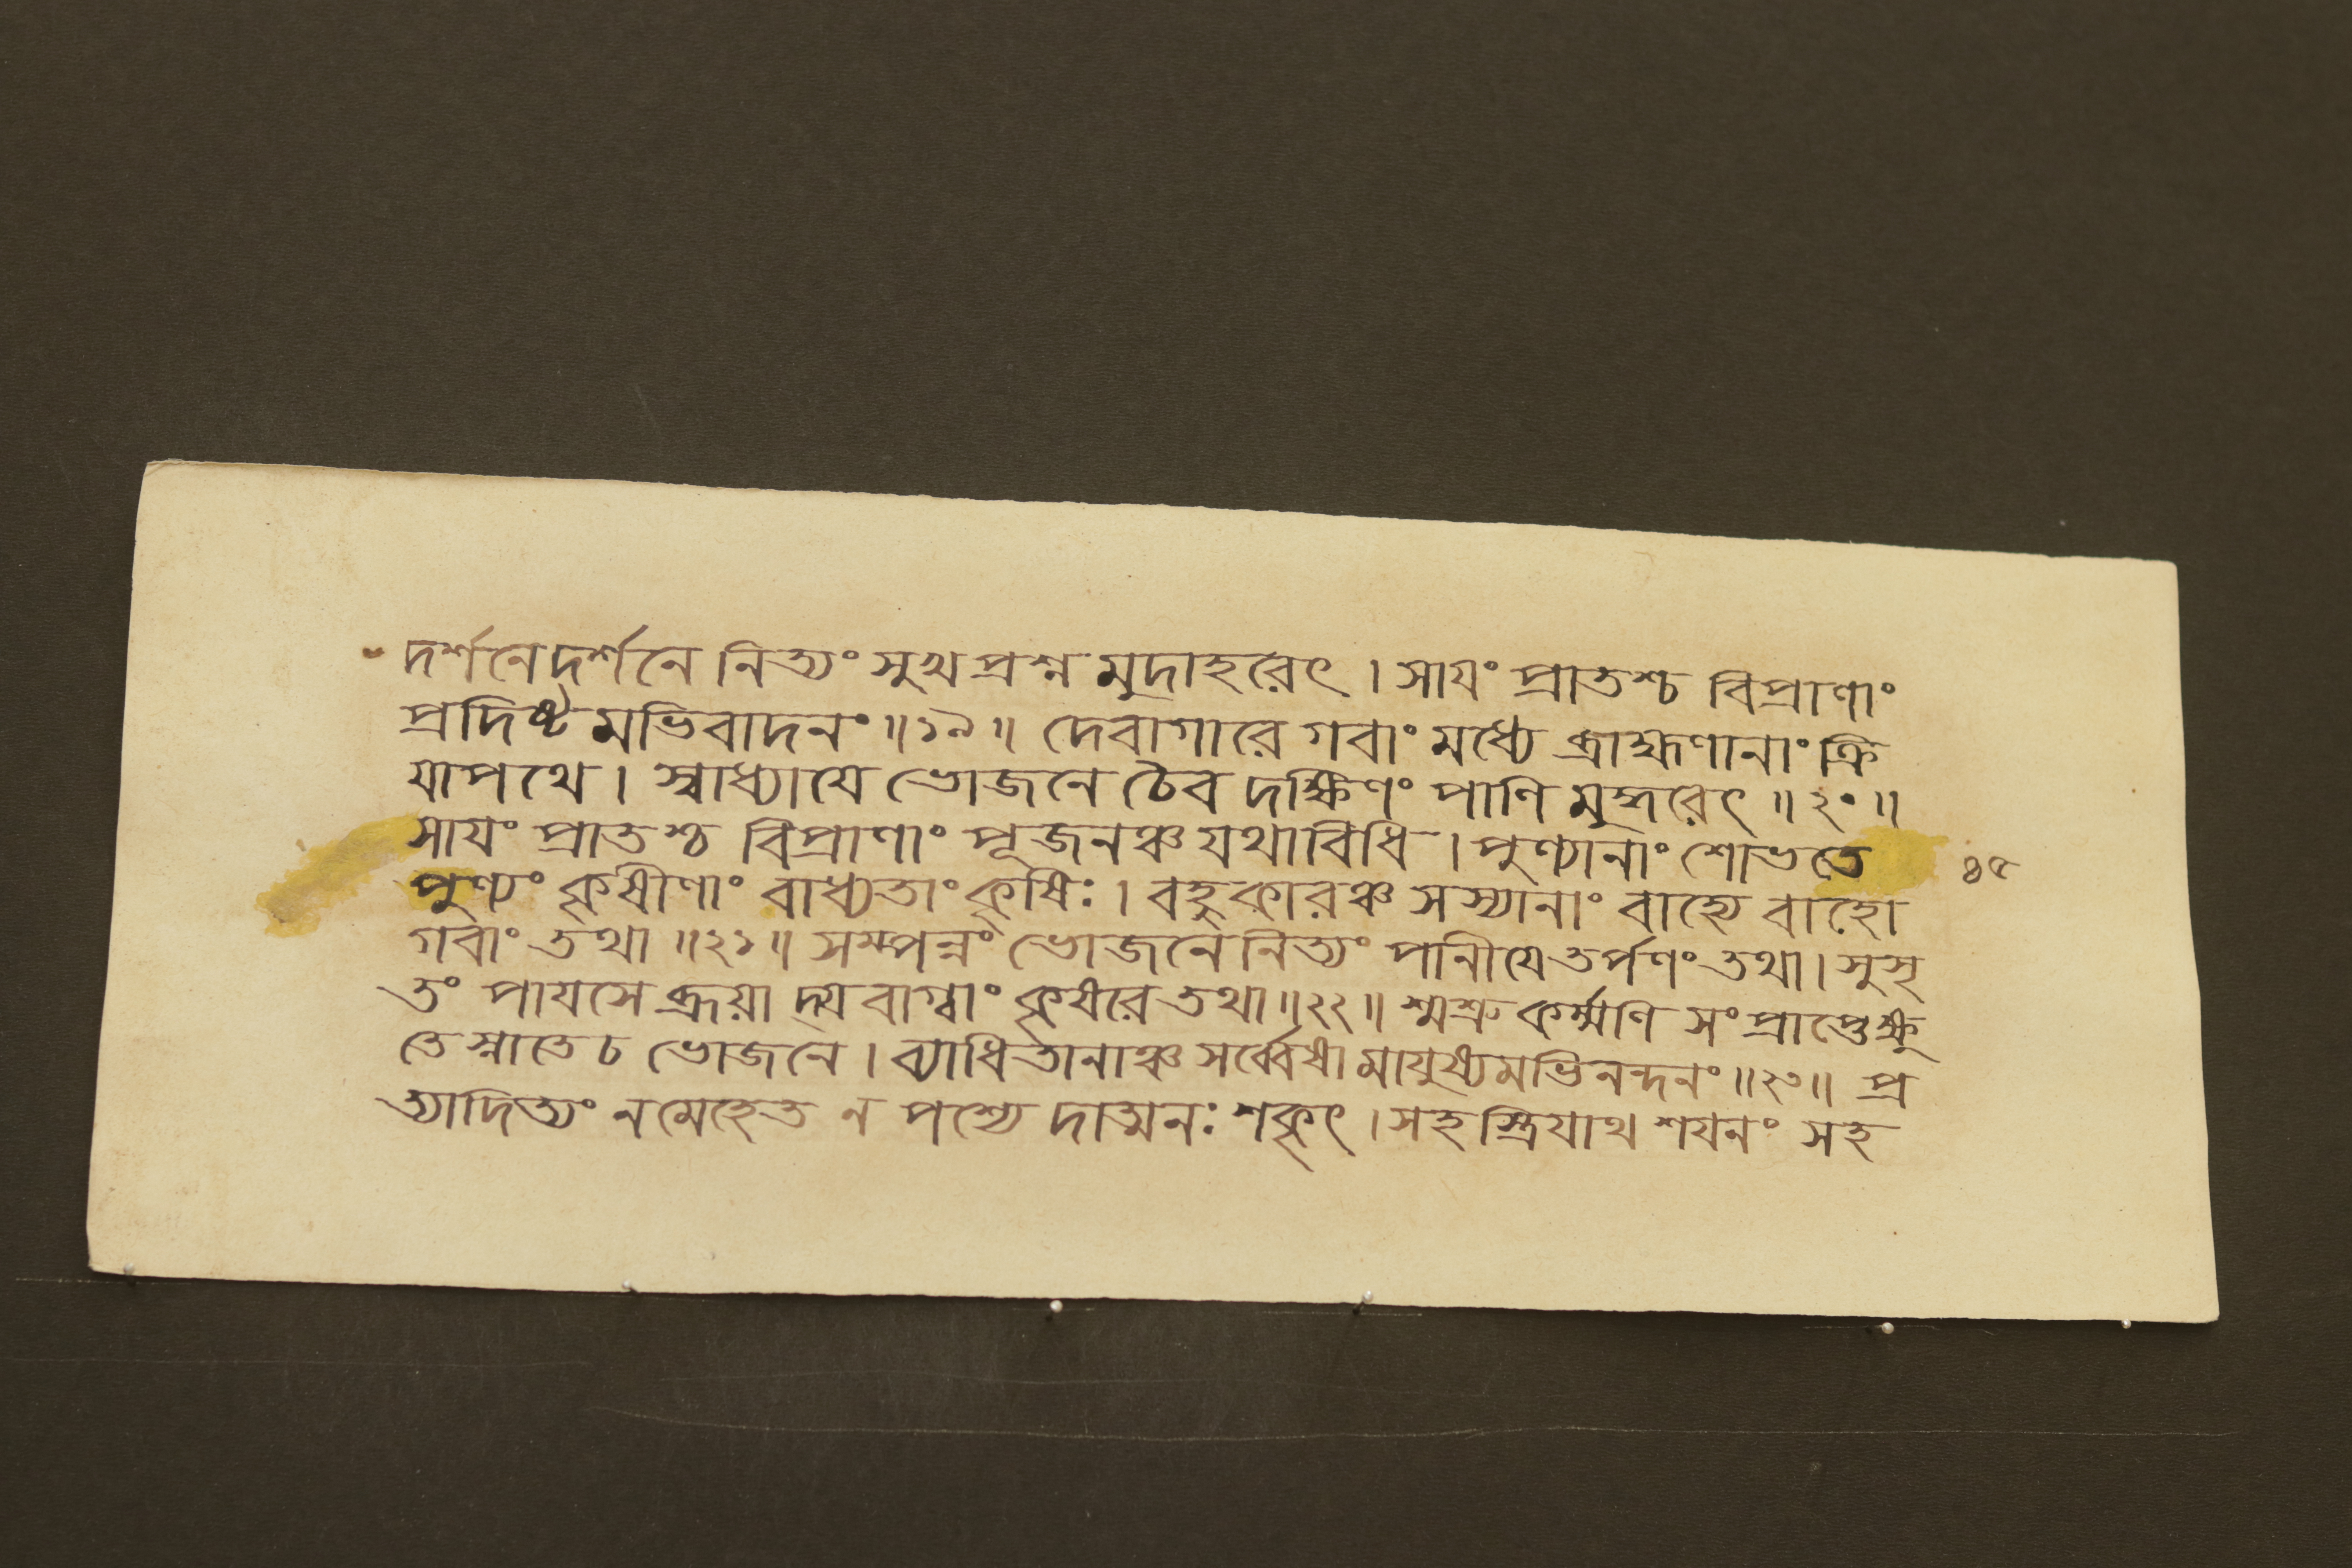 দর্শনেদর্শনে নিত্যং সুখপ্রশ্ন মুদাহরেৎ । সাযং প্রাতশ্চ বিপ্রাণাং
প্রদিষ্ট মভিবাদনং ॥১৯॥ দেবাগারে গবাং মধ্যে ব্রাহ্মণানাং ক্রি
যাপথে । স্বাধ্যাযে ভোজনে চৈব দক্ষিণং পাণি মুদ্ধরেৎ ॥২০॥
সাযং প্রাতশ্চ বিপ্রাণাং পূজনঞ্চ যথাবিধি । পুণ্যানাং শোভতে
পুণ্যং কৃষীণাং বাধ্যতাং কৃষিঃ । বহুকারঞ্চ সস্যানাং বাহ্যে বাহো
গবাং তথা ॥২১॥ সম্পন্নং ভোজনে নিত্যং পানীযে তর্পণং তথা । সুসৃ
তং পাযসে ব্রূয়া দ্যবাগ্বাং কৃষরে তথা ॥২২॥ শ্মশ্রু কর্ম্মণি সংপ্রাপ্তেক্ষু
তে স্নাতে চ ভোজনে । ব্যাধিতানাঞ্চ সর্ব্বেষা মাযুষ্যমভিনন্দনং ॥২৩॥ প্র
ত্যাদিত্যং নমেহেত ন পশ্যে দাত্মনঃ শকৃৎ । সহ স্ত্রিযাথ শযনং সহ
৪৫